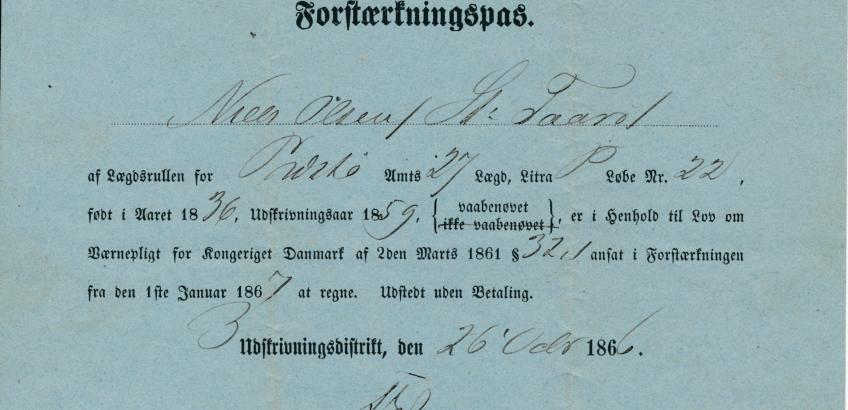 Forstærkningspas.
Niels Olsen, St. Taarö
af Lægdsrullen for Præstø Amts 27 Lægd, Litra P Løbe Nr. 22,
født i Aaret 1836, Udskrivningsaar 1859, { vaabenøvet
ikke vaabenøvet }, er i Henhold til Lov om
Værnepligt for Kongeriget Danmark af 2den Marts 1861 § 32,1 ansat i Forstærkningen
fra den 1ste Januar 1867 at regne. Udstedt uden Betaling.
3 Udskrivningsdistrikt, den 26' 1866.